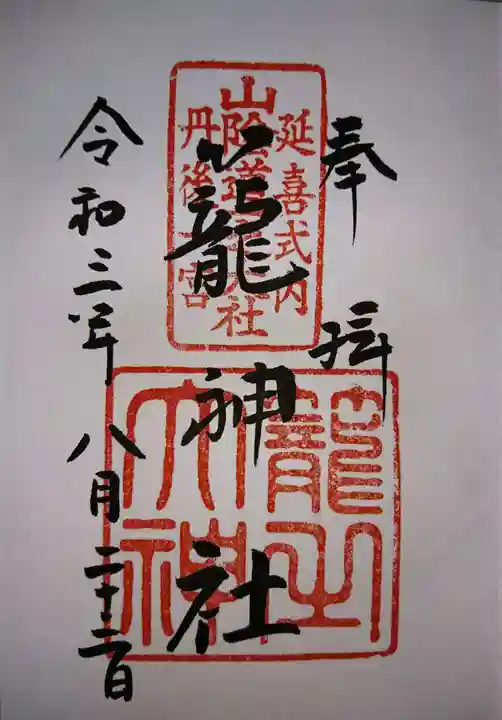 奉拝
延喜式内
山陰道大社
丹後一宮
籠神社
籠之
大神
令和三年八月二十二日